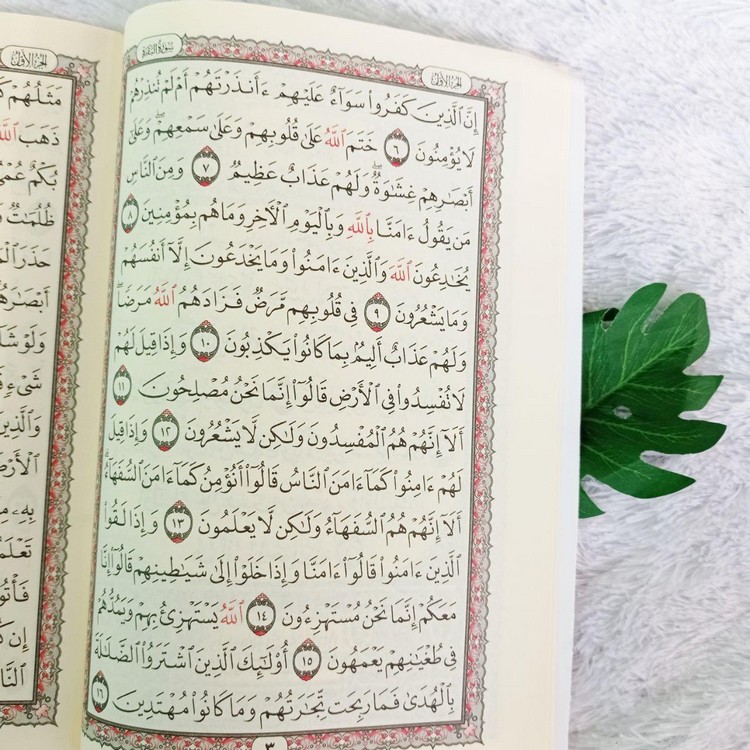 الجزء الأول
سورة البقرة
إِنَّ ٱلَّذِينَ كَفَرُوا۟ سَوَآءٌ عَلَيْهِمْ ءَأَنذَرْتَهُمْ أَمْ لَمْ تُنذِرْهُمْ
لَا يُؤْمِنُونَ ٦ خَتَمَ ٱللَّهُ عَلَىٰ قُلُوبِهِمْ وَعَلَىٰ سَمْعِهِمْ ۖ وَعَلَىٰٓ
أَبْصَٰرِهِمْ غِشَٰوَةٌ ۖ وَلَهُمْ عَذَابٌ عَظِيمٌ ٧ وَمِنَ ٱلنَّاسِ
مَن يَقُولُ ءَامَنَّا بِٱللَّهِ وَبِٱلْيَوْمِ ٱلْأَخِرِ وَمَا هُم بِمُؤْمِنِينَ ٨
يُخَٰدِعُونَ ٱللَّهَ وَٱلَّذِينَ ءَامَنُوا۟ وَمَا يَخْدَعُونَ إِلَّآ أَنفُسَهُمْ
وَمَا يَشْعُرُونَ ٩ فِى قُلُوبِهِم مَّرَضٌ فَزَادَهُمُ ٱللَّهُ مَرَضًا ۖ
وَلَهُمْ عَذَابٌ أَلِيمٌۢ بِمَا كَانُوا۟ يَكْذِبُونَ ١٠ وَإِذَا قِيلَ لَهُمْ
لَا تُفْسِدُوا۟ فِى ٱلْأَرْضِ قَالُوٓا۟ إِنَّمَا نَحْنُ مُصْلِحُونَ ١١
أَلَآ إِنَّهُمْ هُمُ ٱلْمُفْسِدُونَ وَلَٰكِن لَّا يَشْعُرُونَ ١٢ وَإِذَا قِيلَ
لَهُمْ ءَامِنُوا۟ كَمَآ ءَامَنَ ٱلنَّاسُ قَالُوٓا۟ أَنُؤْمِنُ كَمَآ ءَامَنَ ٱلسُّفَهَآءُ ۗ
أَلَآ إِنَّهُمْ هُمُ ٱلسُّفَهَآءُ وَلَٰكِن لَّا يَعْلَمُونَ ١٣ وَإِذَا لَقُوا۟
ٱلَّذِينَ ءَامَنُوا۟ قَالُوٓا۟ ءَامَنَّا وَإِذَا خَلَوْا۟ إِلَىٰ شَيَٰطِينِهِمْ قَالُوٓا۟ إِنَّا
مَعَكُمْ إِنَّمَا نَحْنُ مُسْتَهْزِءُونَ ١٤ ٱللَّهُ يَسْتَهْزِئُ بِهِمْ وَيَمُدُّهُمْ
فِى طُغْيَٰنِهِمْ يَعْمَهُونَ ١٥ أُو۟لَٰٓئِكَ ٱلَّذِينَ ٱشْتَرَوُا۟ ٱلضَّلَٰلَةَ
بِٱلْهُدَىٰ فَمَا رَبِحَت تِّجَٰرَتُهُمْ وَمَا كَانُوا۟ مُهْتَدِينَ ١٦
٣
الجزء الأول
مَثَلُهُمْ
ذَهَبَ
بُكْمٌ عُمْىٌ
ظُلُمَٰتٌ
حَذَرَ
وَلَوْ
شَىْءٍ
بِهِۦ
إِن